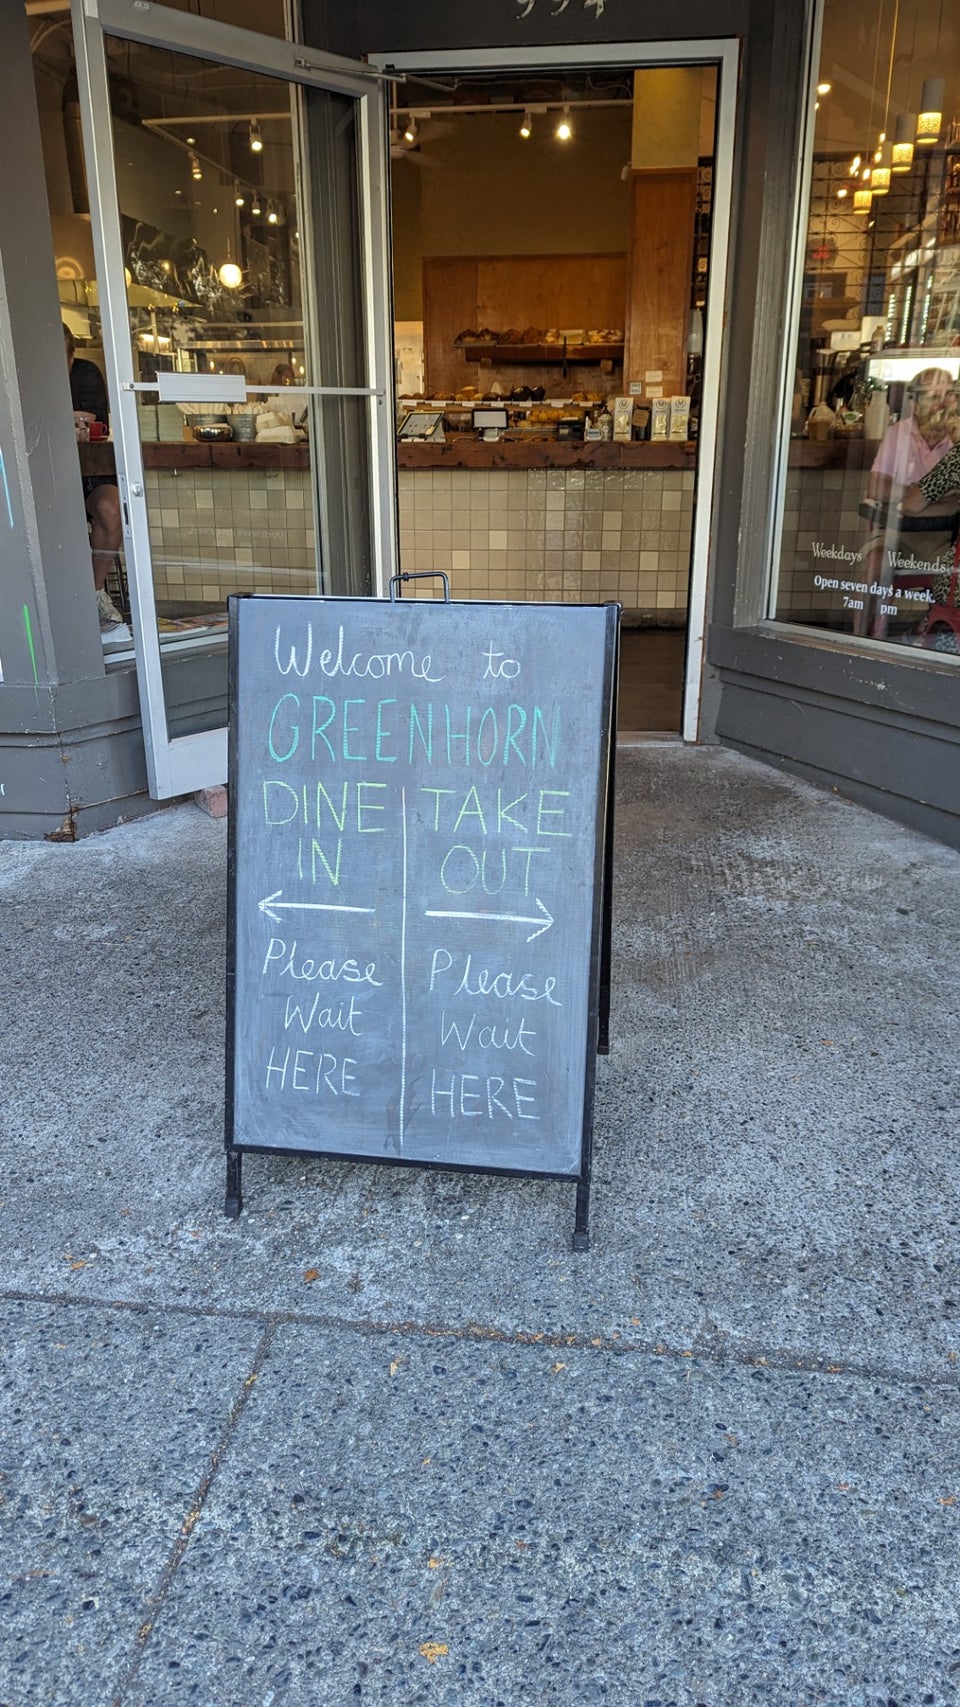 994
Weekdays Weekends
Open seven days a week.
7am pm
Welcome to
GREENHORN
DINE
IN
Please
Wait
HERE
TAKE
OUT
Please
Wait
HERE